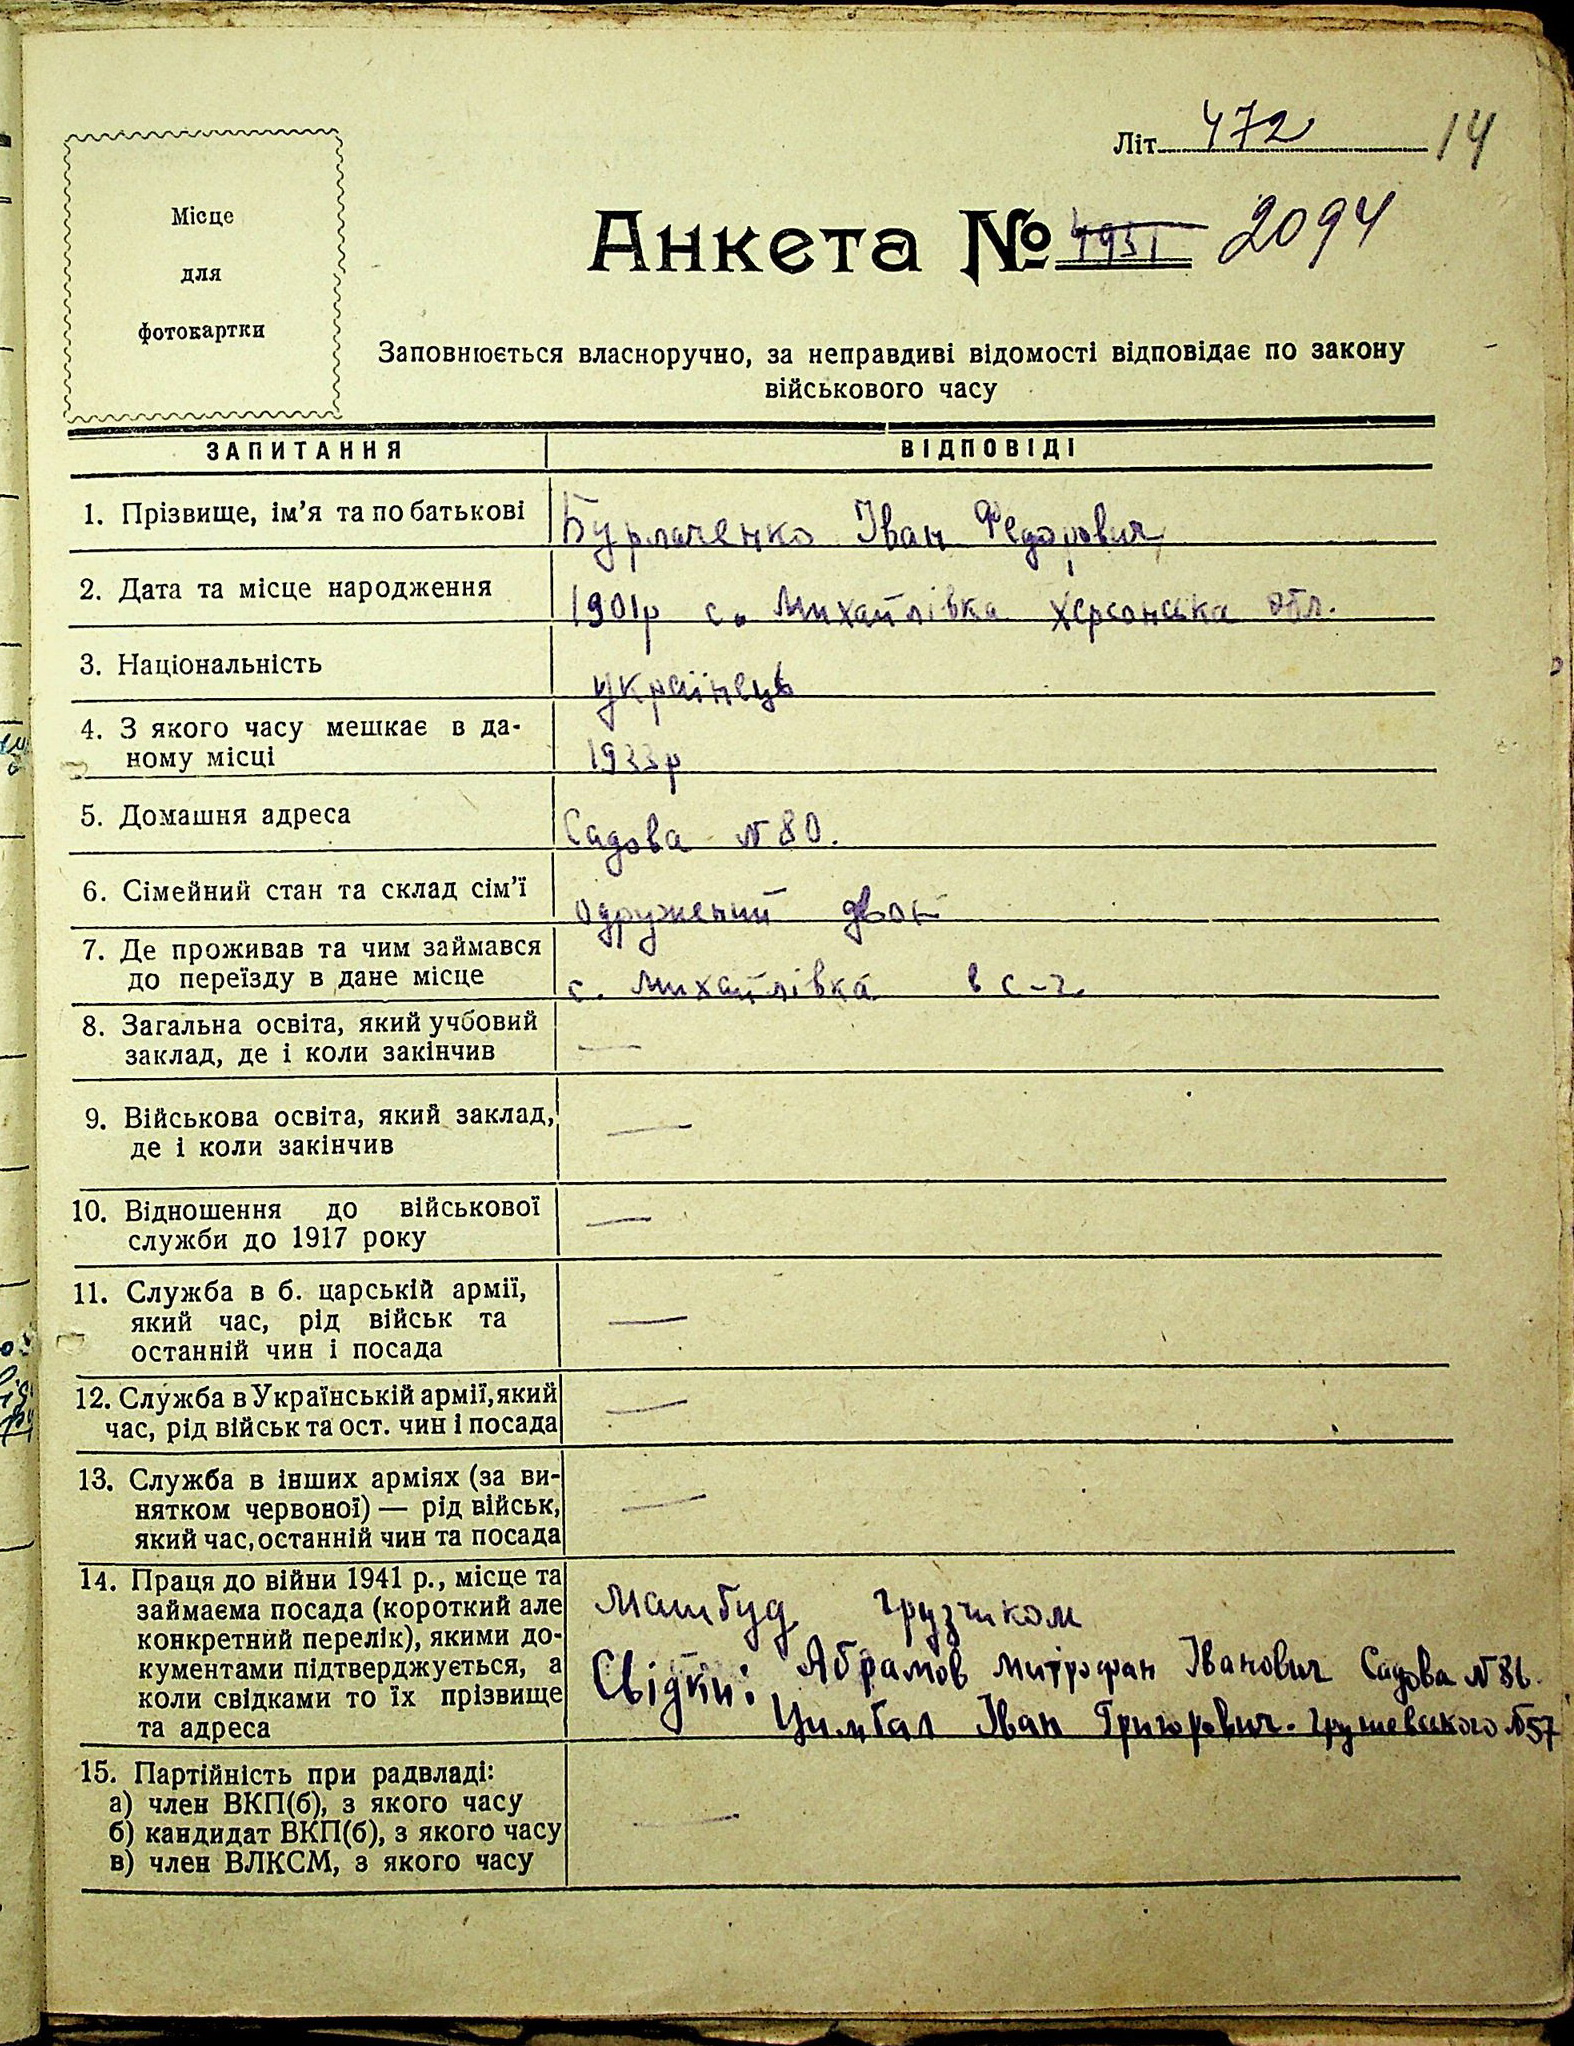 Літ. 472 14
Місце
для
фотокартки
Анкета № 4951 2094
Заповнюється власноручно, за неправдиві відомості відповідає по закону
військового часу
ЗАПИТАННЯ ВІДПОВІДІ
1. Прізвище, ім'я та по батькові Бурлаченко Іван Федорович
2. Дата та місце народження 1901р с. Михайлівка Херсонська обл.
3. Національність українець
4. З якого часу мешкає в да-
ному місці 1933р
5. Домашня адреса Садова №80.
6. Сімейний стан та склад сім'ї одружений двоє
7. Де проживав та чим займався
до переїзду в дане місце с. Михайлівка в с-г.
8. Загальна освіта, який учбовий —
заклад, де і коли закінчив
9. Військова освіта, який заклад, —
де і коли закінчив
10. Відношення до військової —
служби до 1917 року
11. Служба в б. царській армії,
який час, рід військ та —
останній чин і посада
12. Служба в Українській армії, який —
час, рід військ та ост. чин і посада
13. Служба в інших арміях (за ви-
нятком червоної) — рід військ, —
який час, останній чин та посада
14. Праця до війни 1941 р., місце та
займаєма посада (короткий але Машбуд грузчиком
конкретний перелік), якими до-
кументами підтверджується, а Свідки: Абрамов Митрофан Іванович Садова №86.
коли свідками то їх прізвище
та адреса Цимбал Іван Григорович. Грушевського №57
15. Партійність при радвладі:
а) член ВКП(б), з якого часу —
б) кандидат ВКП(б), з якого часу
в) член ВЛКСМ, з якого часу